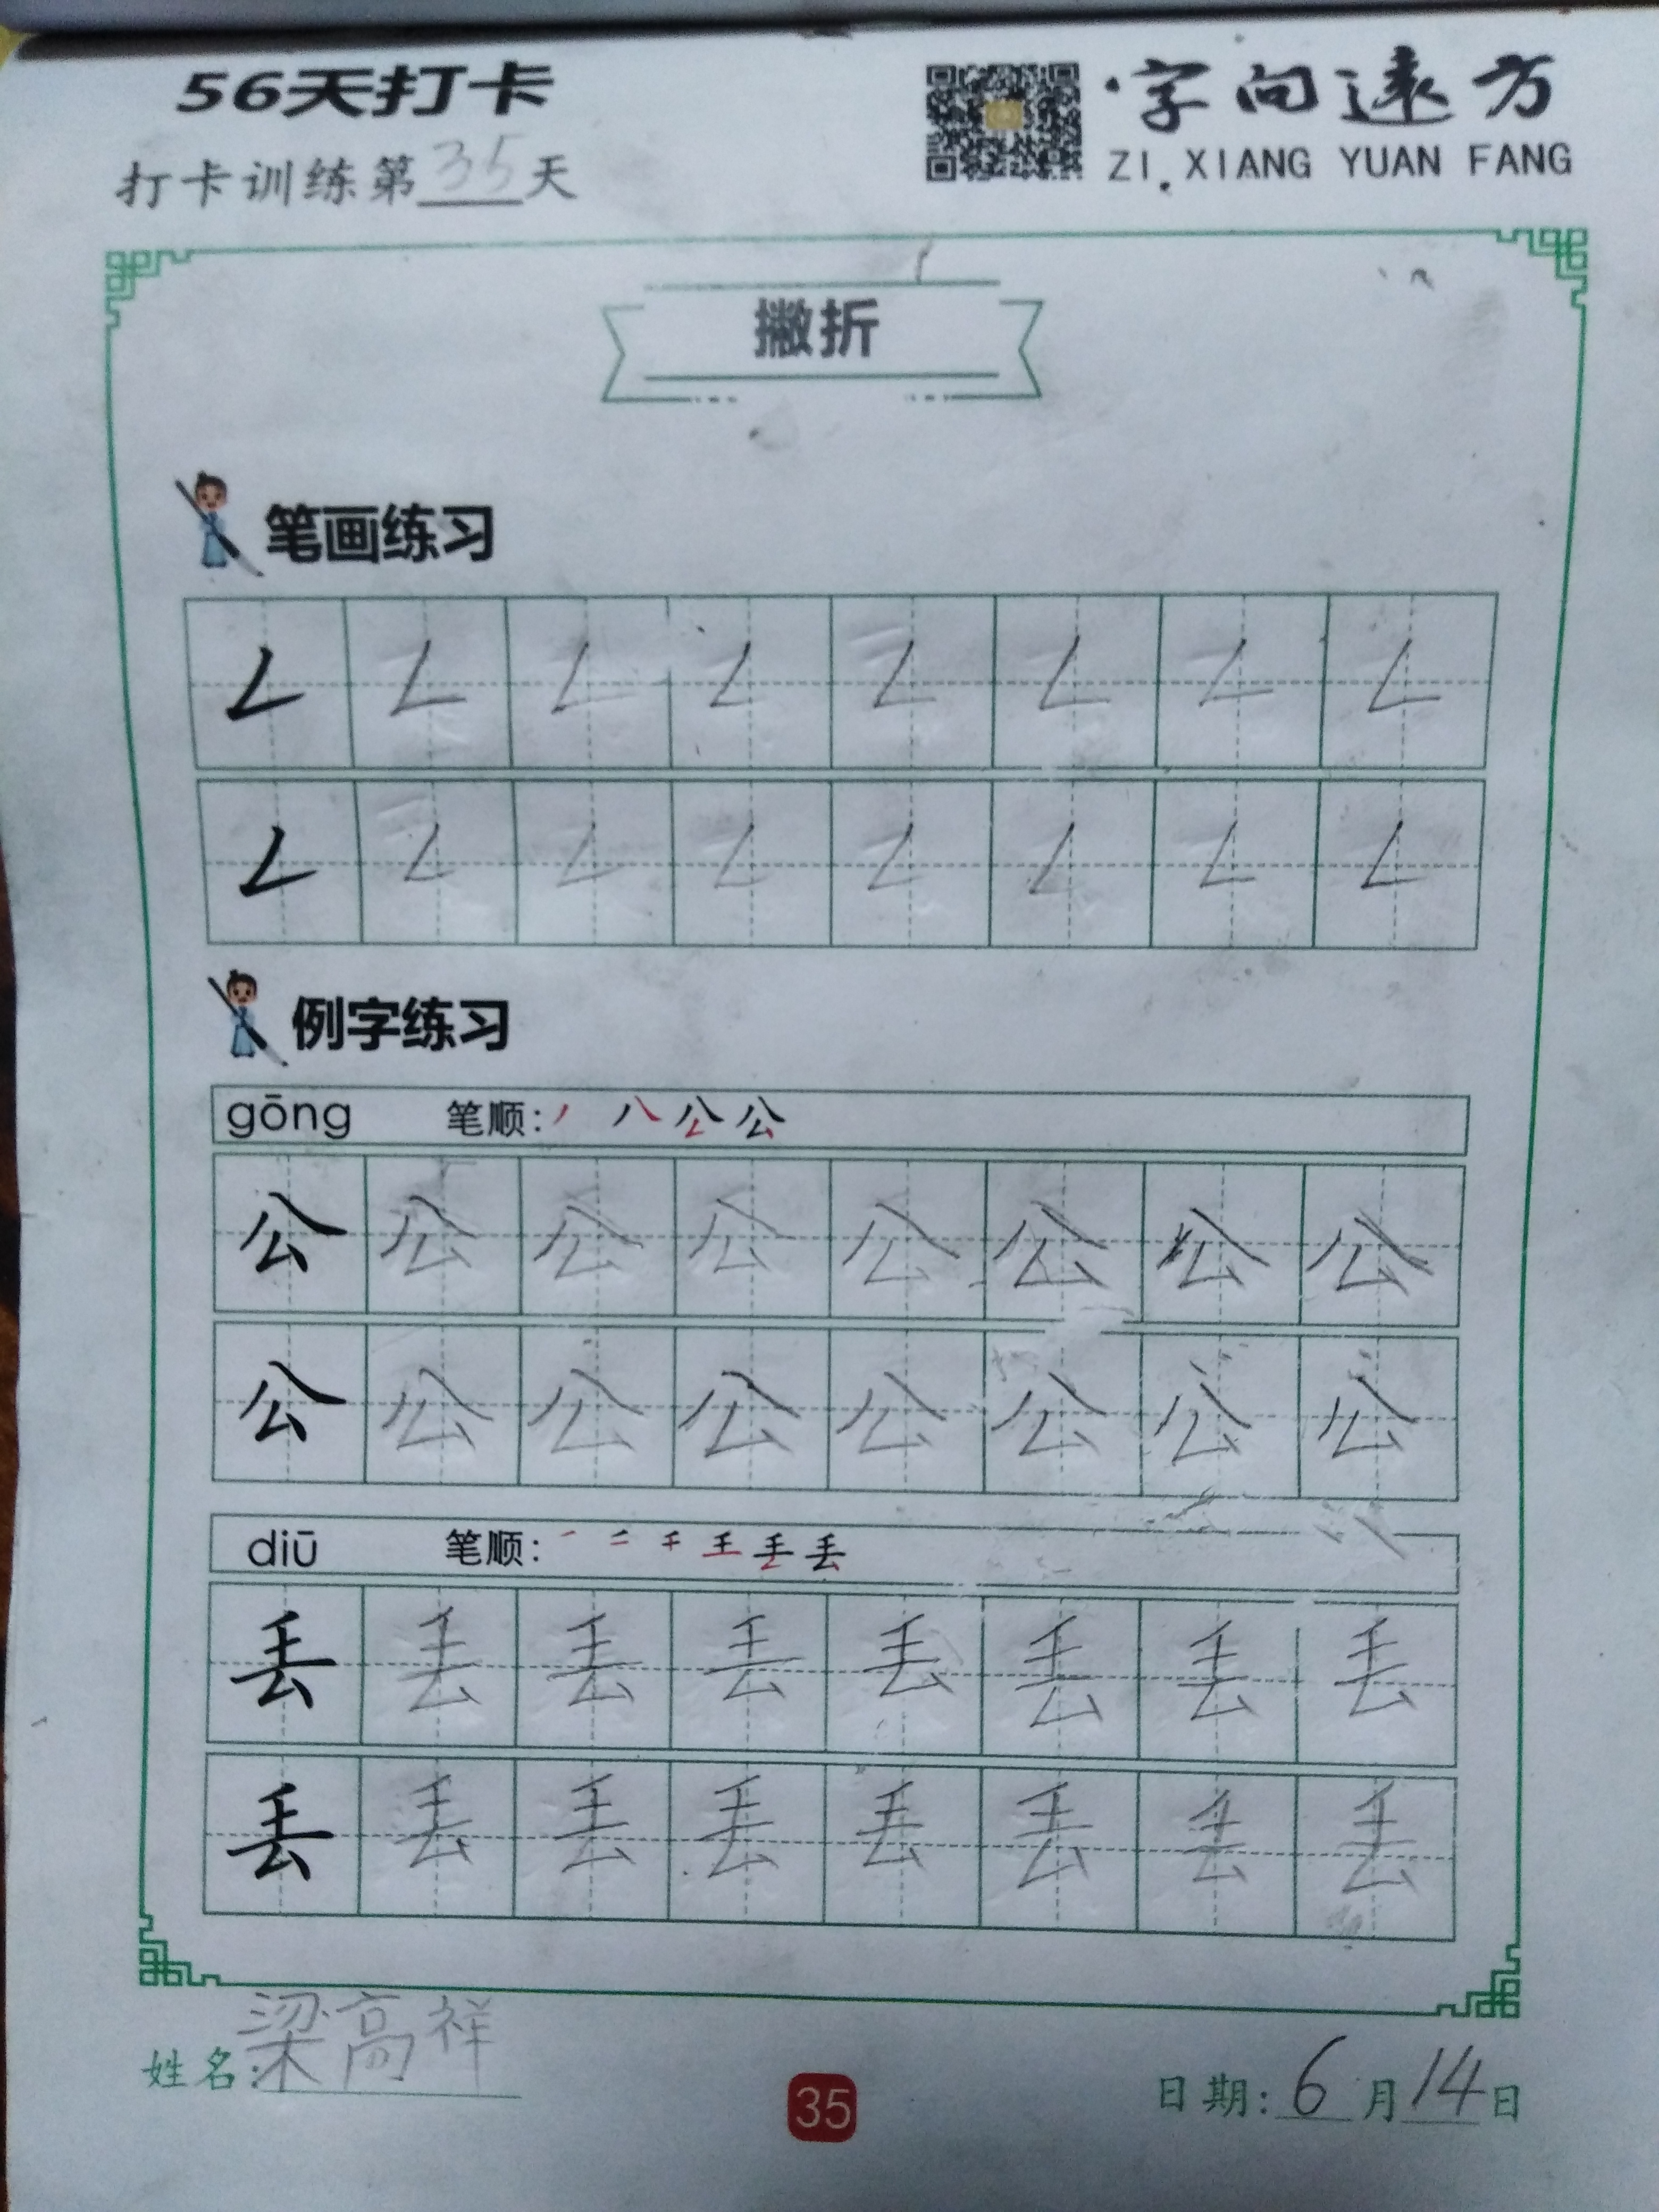 56天打卡
字向远方
打卡训练第35天
ZI XIANG YUAN FANG
撇折
笔画练习
𠃋 𠃋 𠃋 𠃋 𠃋 𠃋 𠃋 𠃋
𠃋 𠃋 𠃋 𠃋 𠃋 𠃋 𠃋 𠃋
例字练习
gōng 笔顺: 丿 八 公 公
公 公 公 公 公 公 公 公
公 公 公 公 公 公 公 公
diū 笔顺: 一 二 千 王 丢 丢
丢 丢 丢 丢 丢 丢 丢 丢
丢 丢 丢 丢 丢 丢 丢 丢
姓名:梁高祥
35
日期:6月14日